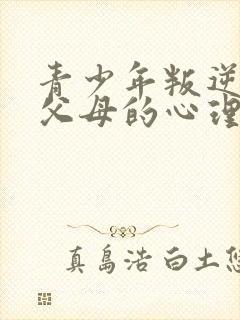 青少年叛逆
父母的心理
真岛浩 白土悠